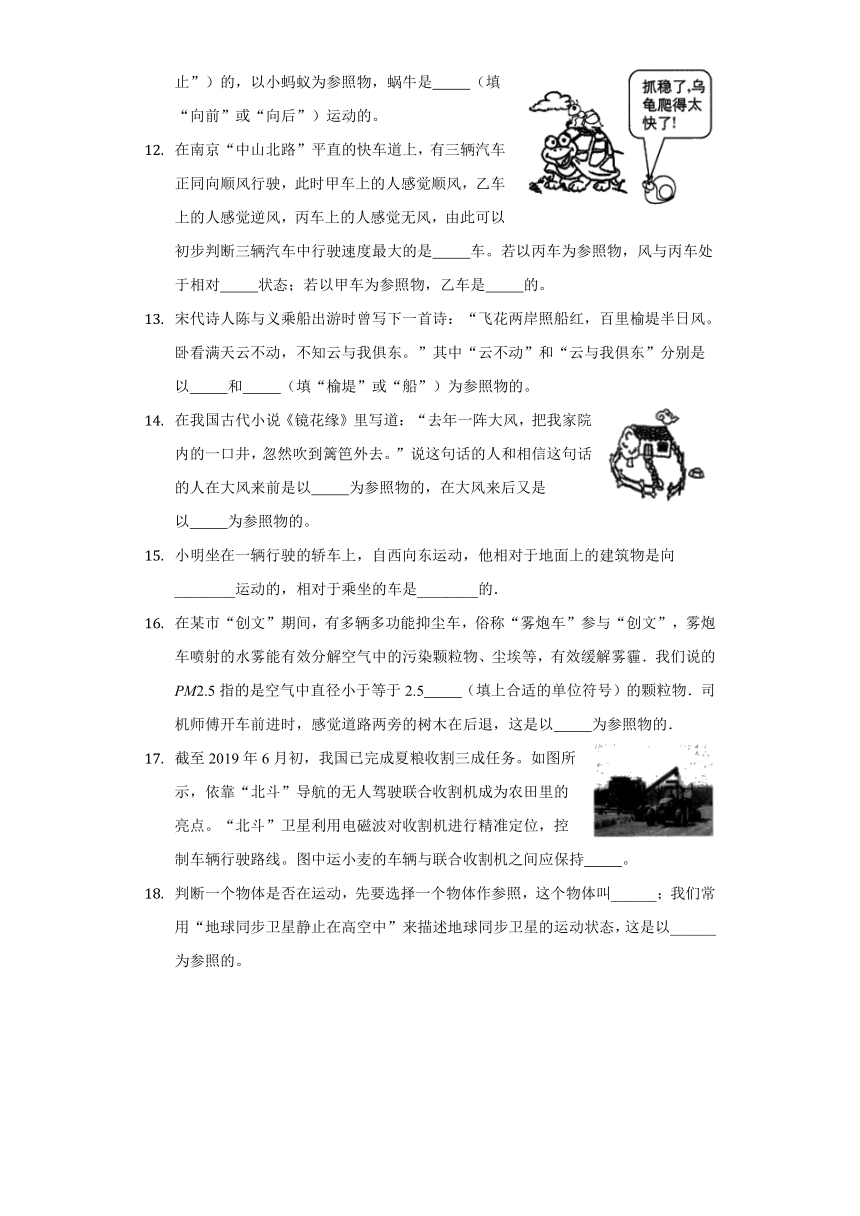 止”)的，以小蚂蚁为参照物，蜗牛是_____（填
“向前”或“向后”）运动的。
抓稳了,乌
龟爬得太
快了!
12. 在南京“中山北路”平直的快车道上，有三辆汽车
正同向顺风行驶，此时甲车上的人感觉顺风，乙车
上的人感觉逆风，丙车上的人感觉无风，由此可以
初步判断三辆汽车中行驶速度最大的是_____车。若以丙车为参照物，风与丙车处
于相对_____状态；若以甲车为参照物，乙车是_____的。
13. 宋代诗人陈与义乘船出游时曾写下一首诗：“飞花两岸照船红，百里榆堤半日风。
卧看满天云不动，不知云与我俱东。”其中“云不动”和“云与我俱东”分别是
以_____和_____（填“榆堤”或“船”）为参照物的。
14. 在我国古代小说《镜花缘》里写道：“去年一阵大风，把我家院
内的一口井，忽然吹到篱笆外去。”说这句话的人和相信这句话
的人在大风来前是以_____为参照物的，在大风来后又是
以_____为参照物的。
15. 小明坐在一辆行驶的轿车上，自西向东运动，他相对于地面上的建筑物是向
________运动的，相对于乘坐的车是________的．
16. 在某市“创文”期间，有多辆多功能抑尘车，俗称“雾炮车”参与“创文”，雾炮
车喷射的水雾能有效分解空气中的污染颗粒物、尘埃等，有效缓解雾霾．我们说的
PM2.5指的是空气中直径小于等于2.5_____（填上合适的单位符号）的颗粒物．司
机师傅开车前进时，感觉道路两旁的树木在后退，这是以_____为参照物的．
17. 截至2019年6月初，我国已完成夏粮收割三成任务。如图所
示，依靠“北斗”导航的无人驾驶联合收割机成为农田里的
亮点。“北斗”卫星利用电磁波对收割机进行精准定位，控
制车辆行驶路线。图中运小麦的车辆与联合收割机之间应保持_____。
18. 判断一个物体是否在运动，先要选择一个物体作参照，这个物体叫______；我们常
用“地球同步卫星静止在高空中”来描述地球同步卫星的运动状态，这是以______
为参照的。